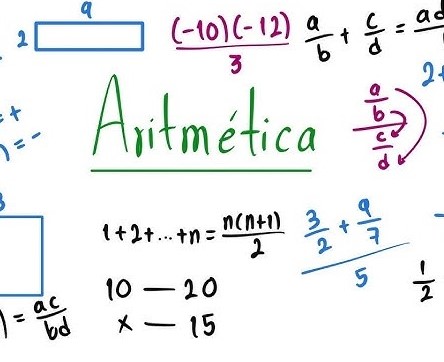 9
2
(-10)(-12)/3
a/b + c/d = ad
2+
= +
) = -
Aritmética
a/b
c/d
3
1+2+...+n = n(n+1)/2
3/2 + 9/7
5
10 — 20
x — 15
1/2
) = ac/bd